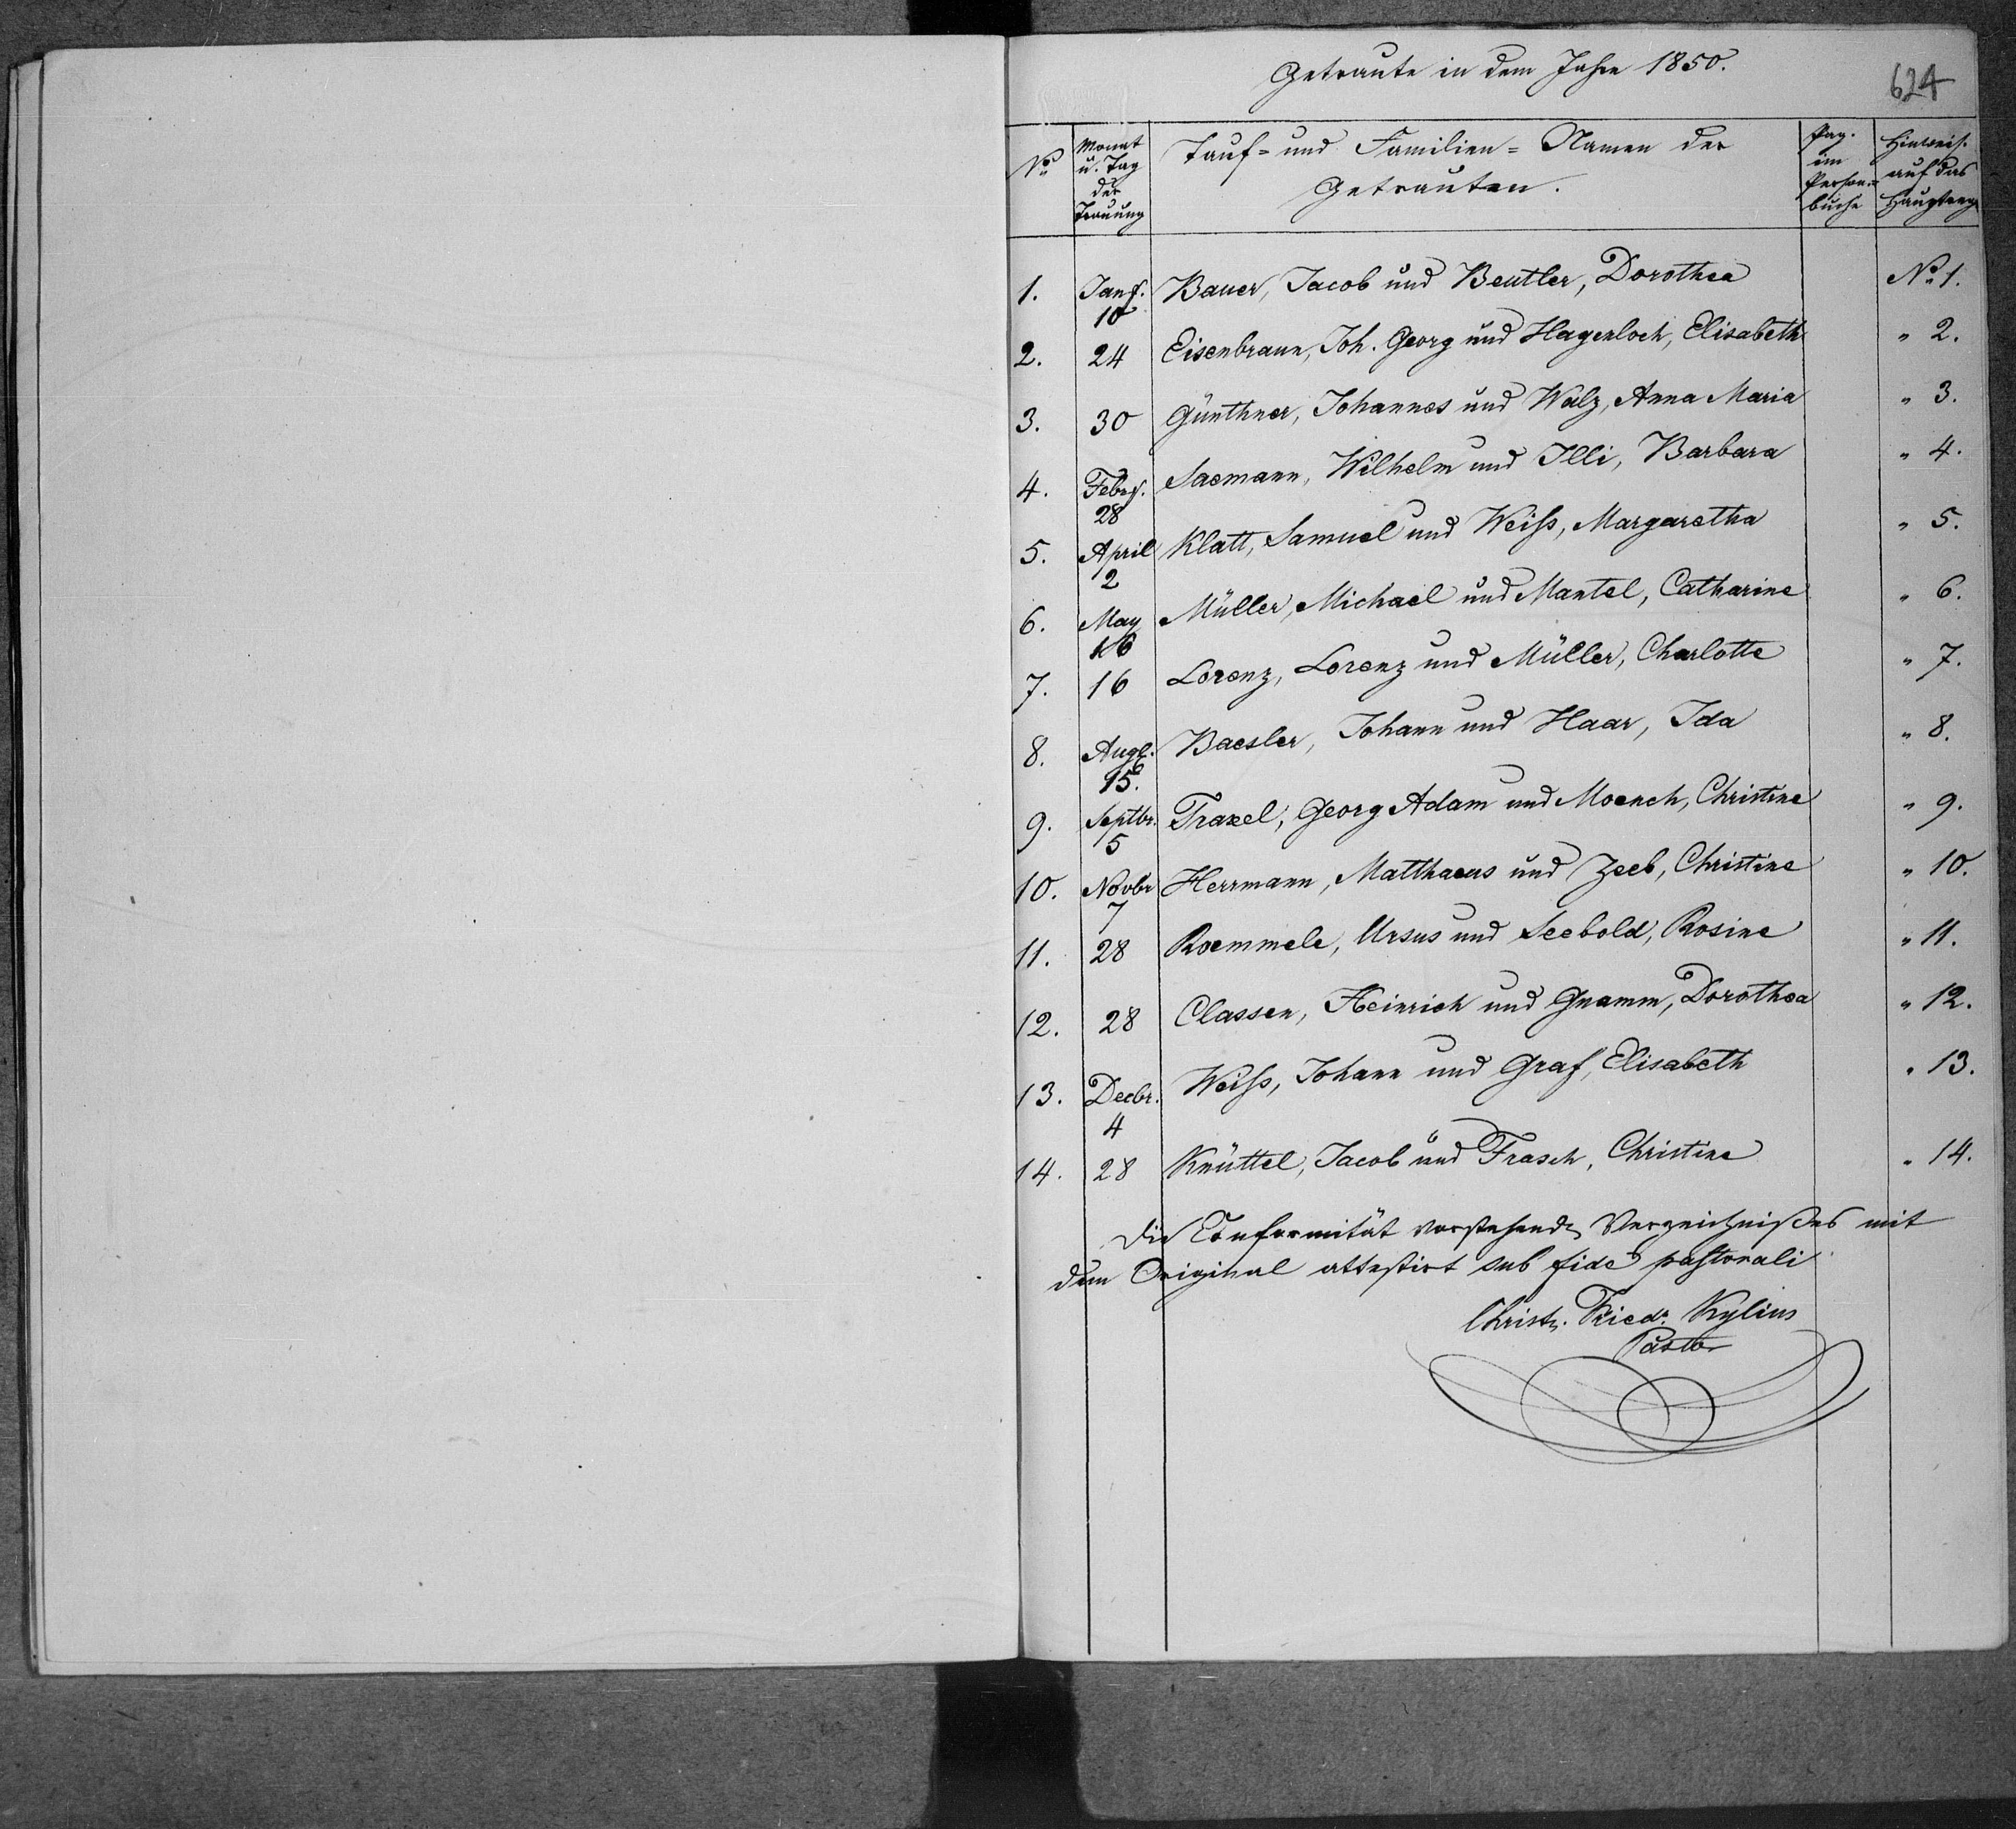 Getraute in dem Jahre 1850.
624
No
Monat
u. Tag
der
Trauung
Tauf= und Familien=Namen der
Getrauten.
Pag.
im
Person=
buche
Hinweis.
auf das
Hauptreg.
1. Jan. 10 Bauer, Jacob und Beutler, Dorothea No 1.
2. 24 Eisenbraun, Joh. Georg und Hagenloch, Elisabeth " 2.
3. 30 Günthner, Johannes und Walz, Anna Maria " 3.
4. Febr. 28 Saemann, Wilhelm und Illi, Barbara " 4.
5. April 2 Klatt, Samuel und Weiß, Margaretha " 5.
6. May 16 Müller, Michael und Mantel, Catharine " 6.
7. 16 Lorenz, Lorenz und Müller, Charlotte " 7.
8. Aug. 15. Baesler, Johann und Haar, Ida " 8.
9. Septbr. 5 Traxel, Georg Adam und Moench, Christine " 9.
10. Novbr 7 Herrmann, Matthaeus und Zeeb, Christine " 10.
11. 28 Roemmele, Ursus und Seebold, Rosine " 11.
12. 28 Classen, Heinrich und Gnamm, Dorothea " 12.
13. Decbr. 4 Weiß, Johann und Graf, Elisabeth " 13.
14. 28 Knüttel, Jacob und Frasch, Christine " 14.
Die Conformität vorstehendn Verzeichnißes mit
dem Original attestirt sub fide pastorali
Christn. Friedr. Kylius
Pastor